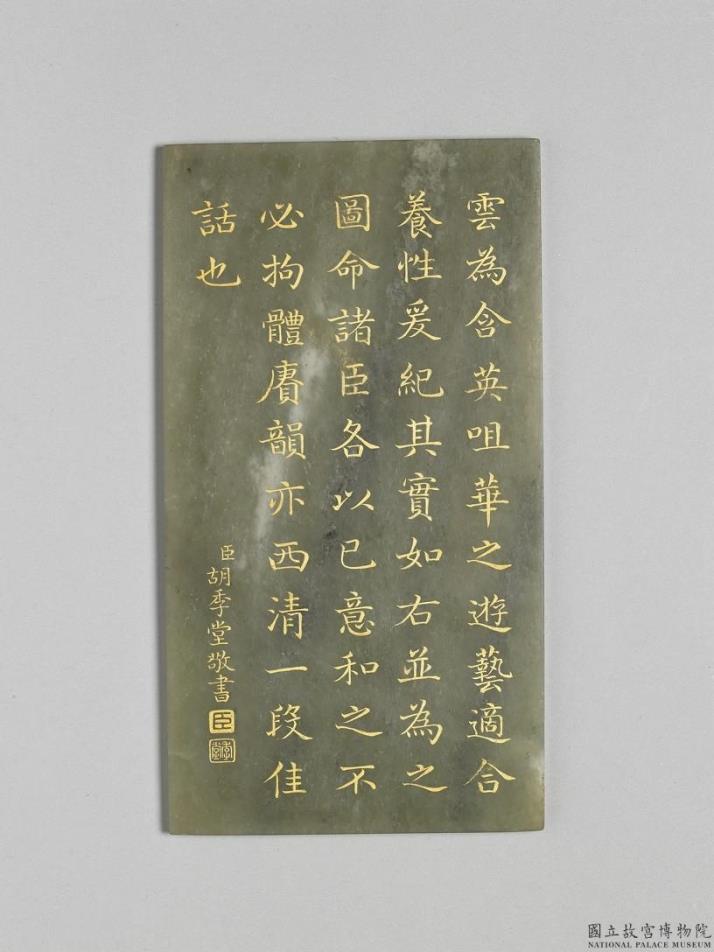 雲為含英咀華之遊藝適合
養性爰紀其實如右並為之
圖命諸臣各以已意和之不
必拘體賡韻亦西清一段佳
話也
臣胡季堂敬書
臣
國立故宮博物院
NATIONAL PALACE MUSEUM